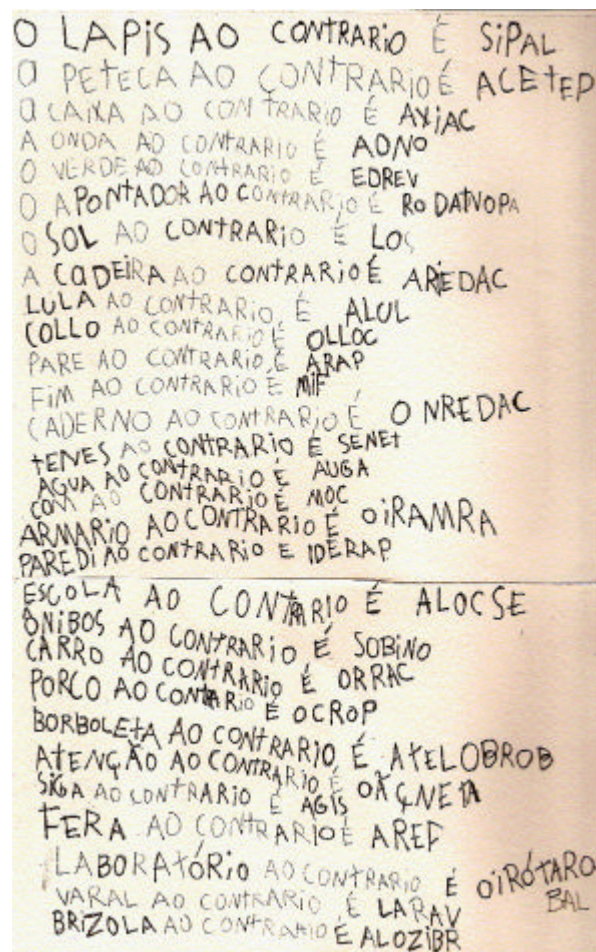 O LAPiS AO CONTRARIO É SiPAL
A PETECA AO CONTRARIO É ACETEP
A CAIXA AO CONTRARIO É AXiAC
A ONDA AO CONTRARIO É ADNO
O VERDE AO CONTRARIO É EDREV
O APONTADOR AO CONTRARIO É RODATNOPA
O SOL AO CONTRARIO É LOS
A CADEIRA AO CONTRARIO É ARIEDAC
LULA AO CONTRARIO É ALUL
COLLO AO CONTRARIO É OLLOC
PARE AO CONTRARIO É ARAP
FIM AO CONTRARIO É MIF
CADERNO AO CONTRARIO É ONREDAC
TENES AO CONTRARIO É SENET
AGUA AO CONTRARIO É AUGA
COM AO CONTRARIO É MOC
ARMARIO AO CONTRARIO É OiRAMRA
PAREDI AO CONTRARIO E IDERAP
ESCOLA AO CONTRARIO É ALOCSE
ÔNIBOS AO CONTRARIO É SOBINO
CARRO AO CONTRARIO É ORRAC
PORCO AO CONTARIO É OCROP
BORBOLETA AO CONTRARIO É ATELOBROB
ATENÇÃO AO CONTRARIO É OÃÇNETA
SIGA AO CONTRARIO É AGIS
FERA AO CONTRARIO É AREF
LABORATÓRIO AO CONTRARIO É OIRÓTARO
BAL
VARAL AO CONTRARIO É LARAV
BRIZOLA AO CONTRARIO É ALOZIBR